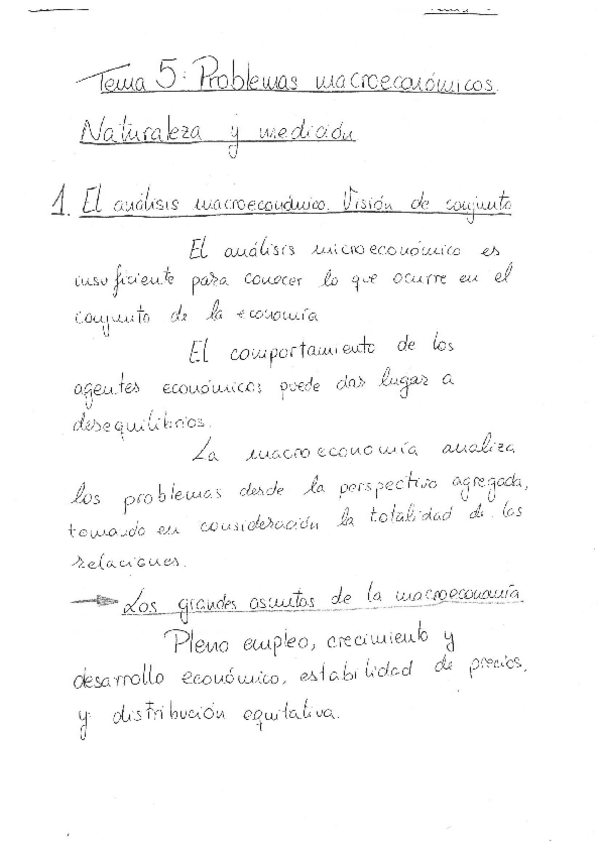 Tema 5: Problemas macroeconómicos.
Naturaleza y medición
1. El análisis macroeconómico. Visión de conjunto
El análisis microeconómico es
insuficiente para conocer lo que ocurre en el
conjunto de la economía
El comportamiento de los
agentes económicos puede dar lugar a
desequilibrios.
La macroeconomía analiza
los problemas desde la perspectiva agregada,
tomando en consideración la totalidad de las
relaciones.
Los grandes asuntos de la macroeconomía
Pleno empleo, crecimiento y
desarrollo económico, estabilidad de precios,
y distribución equitativa.